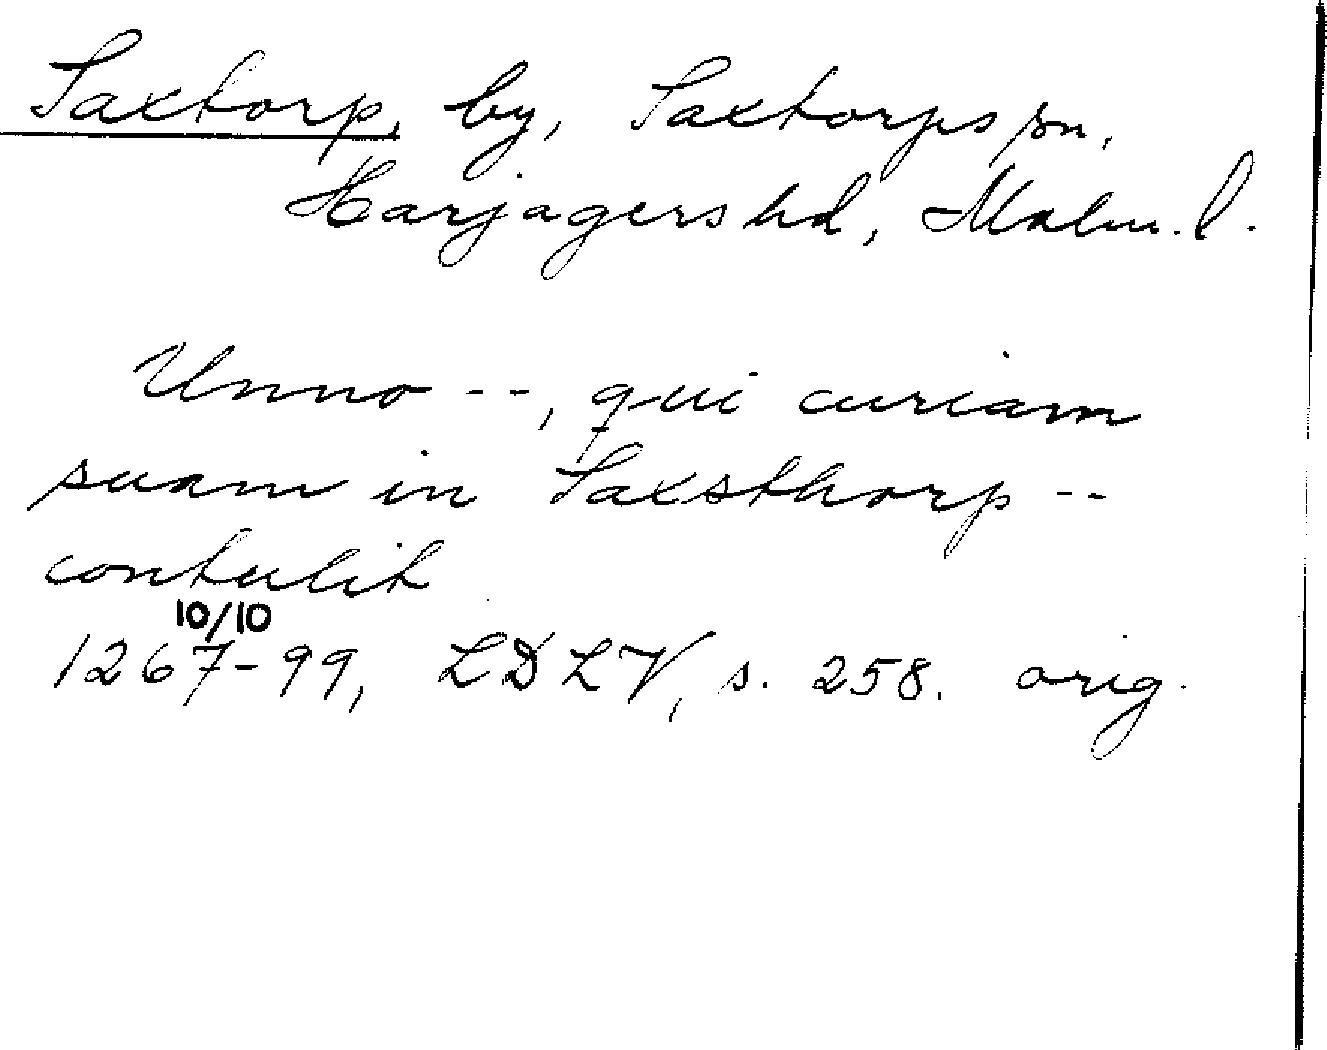 Saxtorp, by, Saxtorps sn,
Harjagers hd, Malm. l.
Unno --, qui curiam
suam in Saxsthorp --
contulit
10/10
1267-99, LDLV, s. 258. orig.